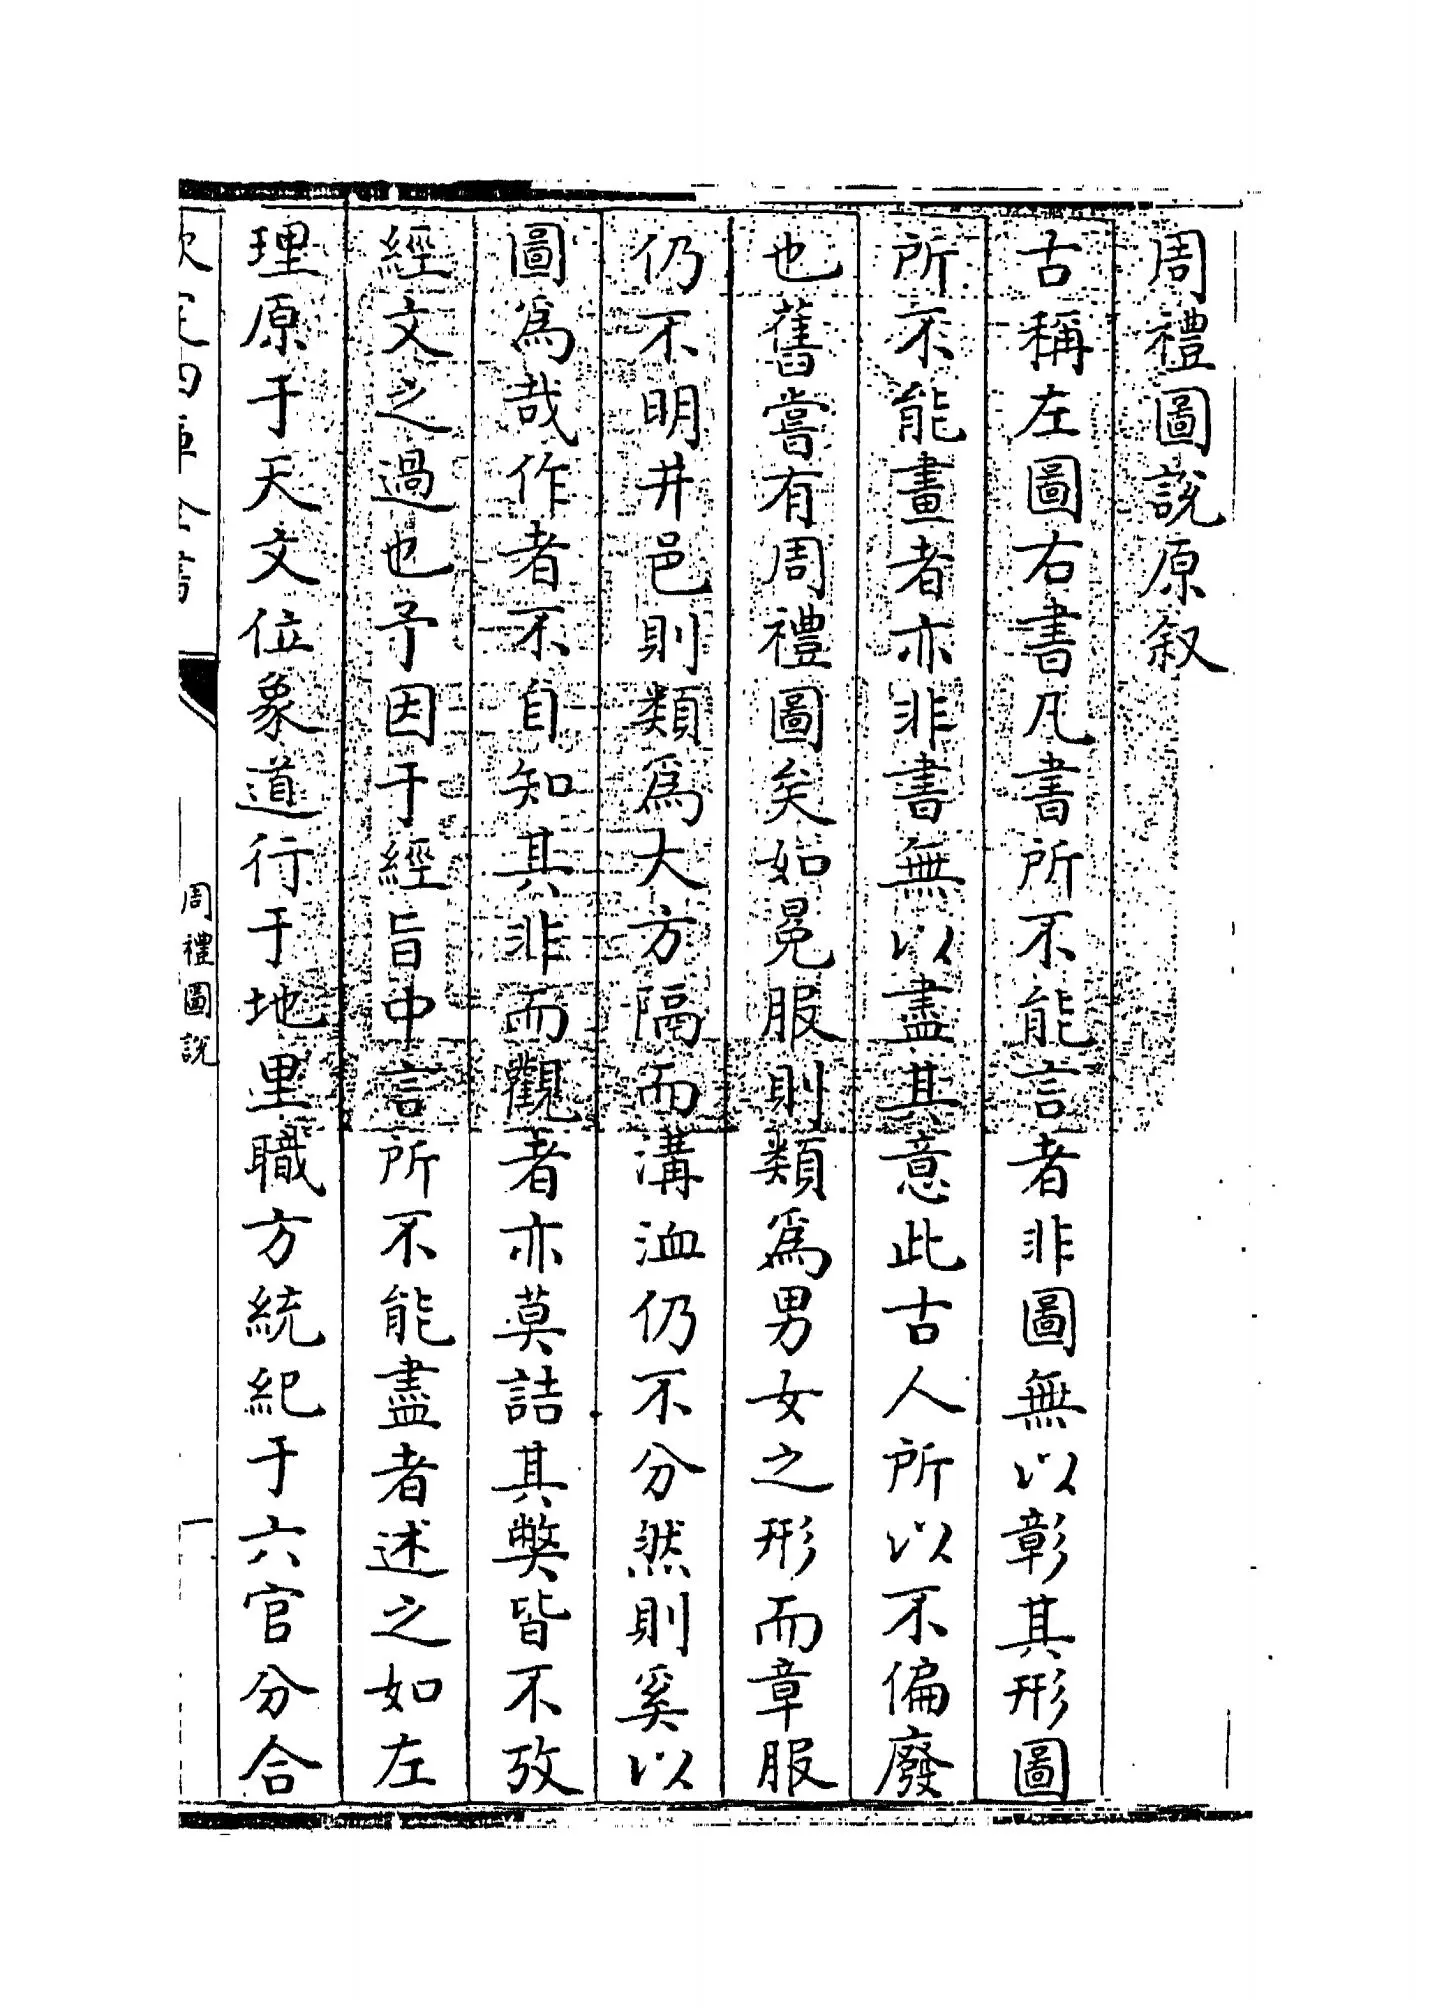 周禮圖說原叙
古稱左圖右書凡書所不能言者非圖無以彰其形圖
所不能畫者亦非書無以盡其意此古人所以不偏廢
也舊嘗有周禮圖矣如冕服則類爲男女之形而章服
仍不明井邑則類爲大方隔而溝洫仍不分然則奚以
圖爲哉作者不自知其非而觀者亦莫詰其弊皆不攷
經文之過也予因于經旨中言所不能盡者述之如左
理原于天文位象道行于地里職方統紀于六官分合
欽定四庫全書
周禮圖說
一